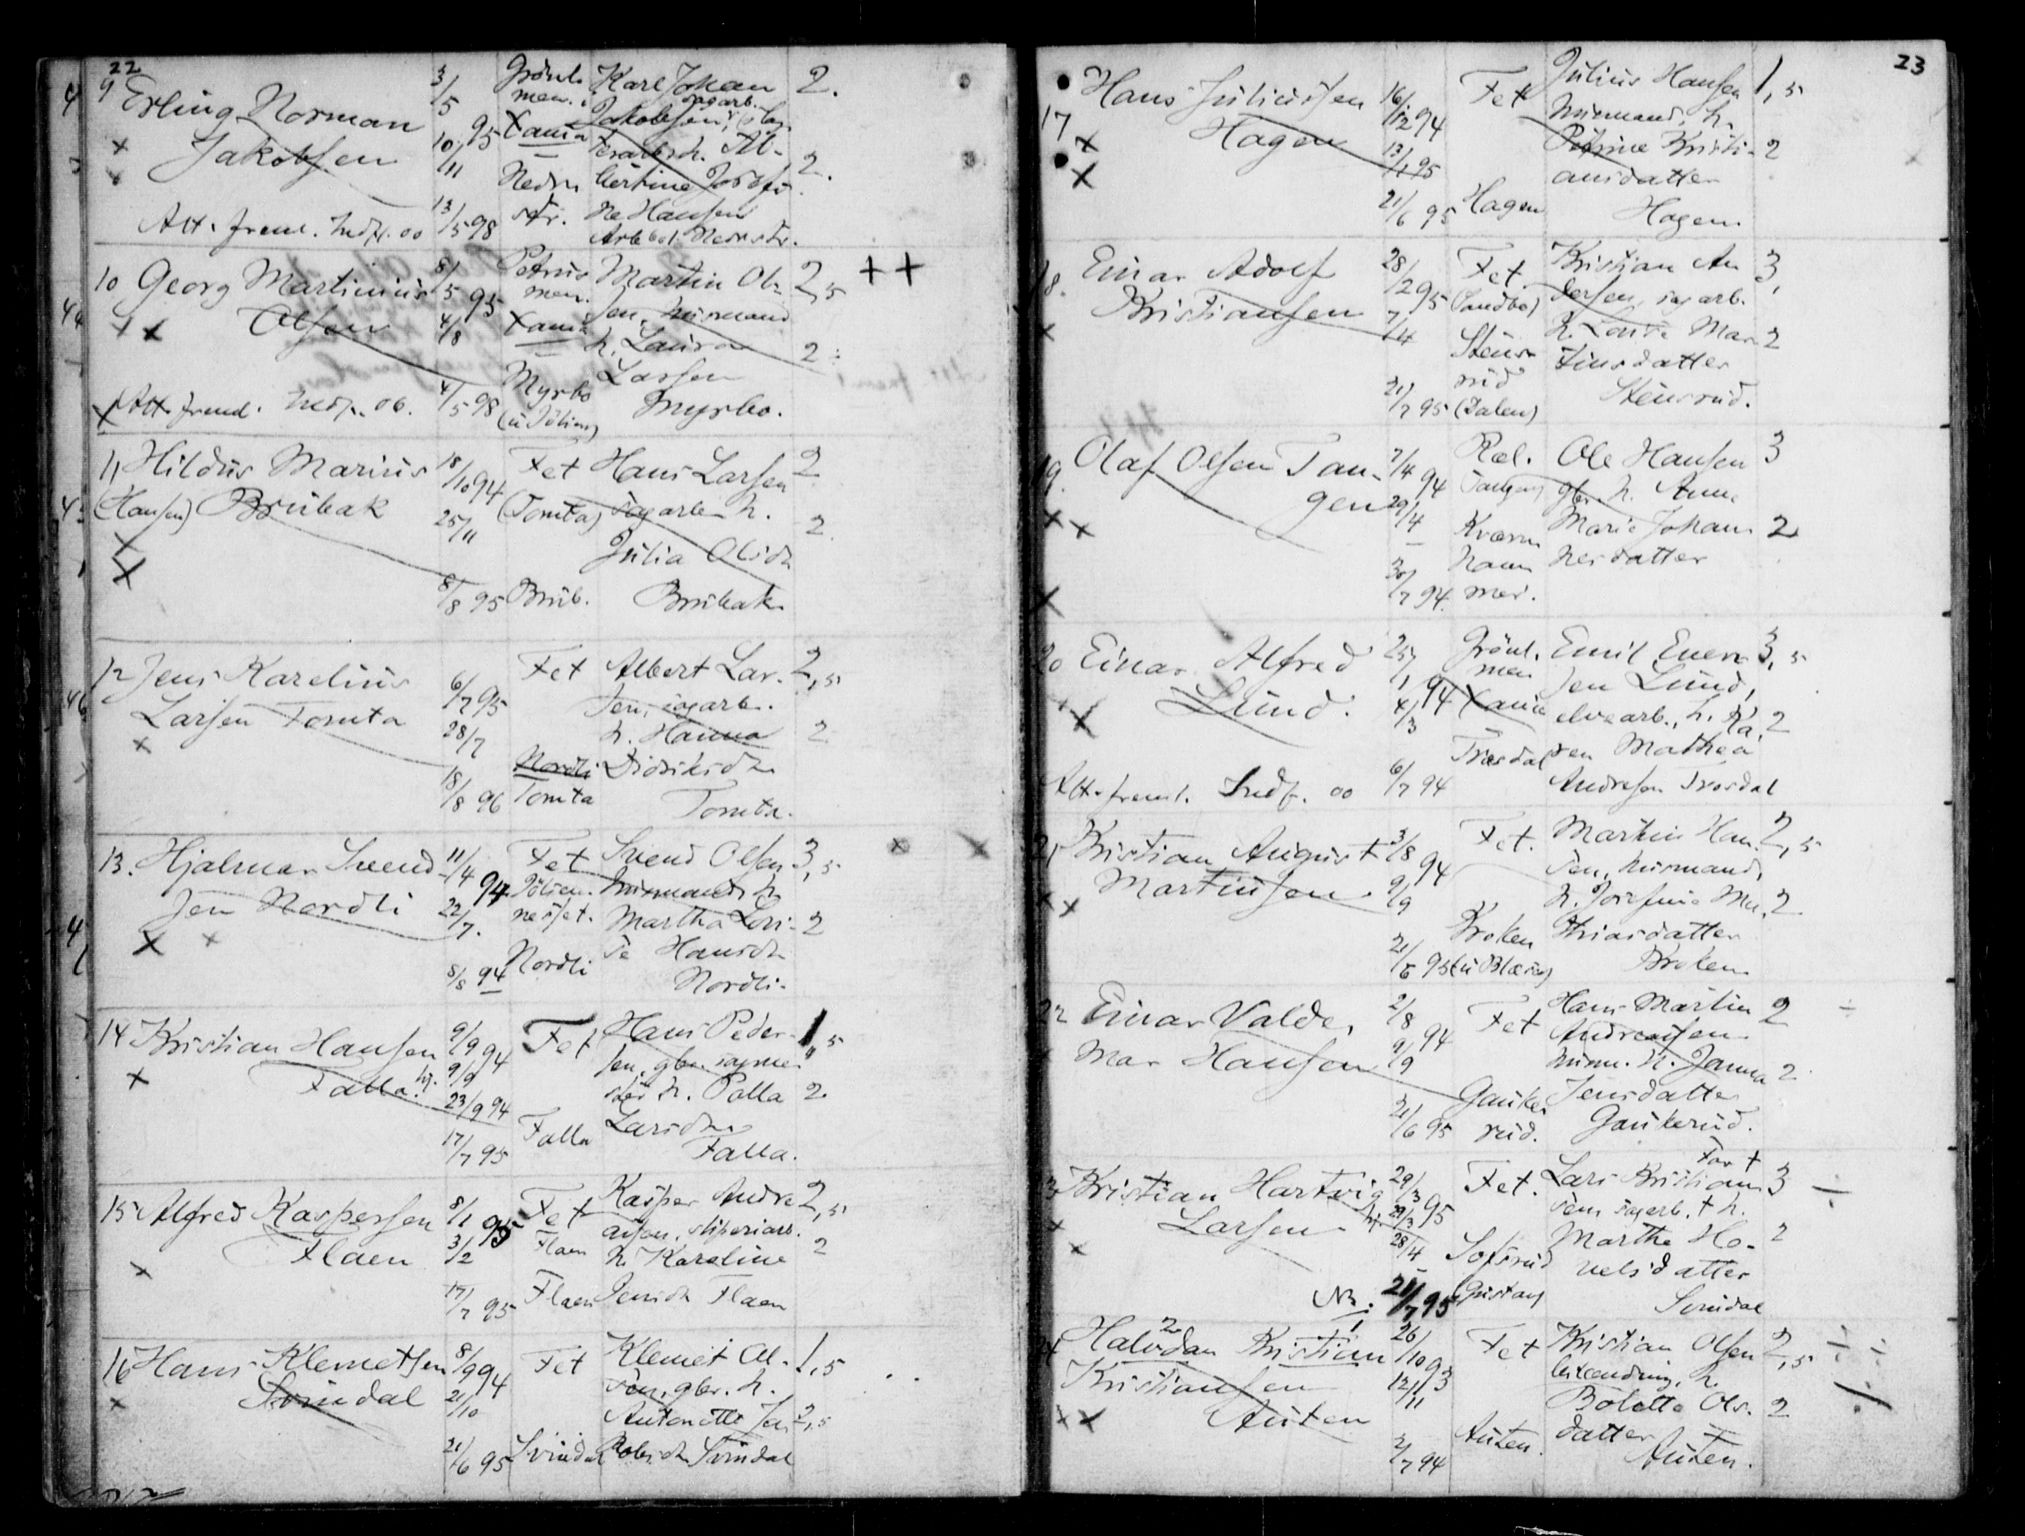 22
9 Erling Norman
Jakobsen
3/5 95
10/11
13/5 98
Grönl.
men.
Xania
Nedre
Karl Johan
Jakobsen,
Hansen
2.
2.
Att. freml. Indf. 00
10 Georg Martinius
Olsen
8/5 95
4/8
4/5 98
Petrus
men.
Xania
Myrbo
Martin Ol-
sen, husmand
h. Laura
Larsen
Myrbo.
2,5
2
++
Att. freml. Indf. 00.
11 Hildus Marius
(Hansen) Brubak
18/10 94
25/11
8/8 95
Fet
(Tomta)
Brub.
Hans Larsen
sagarb. h.
Julia Olsdr
Brubak
2
2
12 Jens Karelius
Larsen Tomta
6/7 95
28/7
18/8 96
Fet
Nordli
Tomta
Albert Lar-
sen, sagarb.
h. Hanna
Didriksdr
Tomta.
2,5
2
13. Hjalmar Svend-
sen Nordli
11/4 94
22/7.
8/8 94
Fet
Nordli
Svend Olsen
husmand h.
Martha Lovi-
se Hansdr
Nordli.
3,5
2
14 Kristian Hansen
Falla. hj.
9/9 94
9/9
23/9 94
17/7 95
Fet
Falla
Hans Peder-
sen, gbr.
h. Polla
Larsdr
Falla.
1,5
2.
15 Alfred Kaspersen
Flaen
8/1 95
3/2
17/7 95
Fet
Flaen
Flaen
Kasper Andre
asen,
h. Karoline
Jensdr Flaen
2,5
2
16 Hans Klemetsen
Svindal
8/9 94
21/10
21/6 95
Fet
Svindal
Klemet Ol-
sen, gbr. h.
Antonette
Svindal
1,5
2,5
23
17
Hans Juliussen
Hagen
16/12 94
13/1 95
21/6 95
Fet
Hagen
Julius Hansen
husmand, h.
Petrine Kristi-
ansdatter
Hagen
1,5
2
18.
Einar Adolf
Kristiansen
28/2 95
7/4
21/7 95
Fet
(Sandbo)
Stens-
rud
(Dalen)
Kristian An
dersen, sagarb.
h. Lovise Mar
tinsdatter
Stensrud.
3,
2
19.
Olaf Olsen Tan-
gen
7/4 94
29/4
30/7 94.
Ræl.
Tangen
Kværn
ham
mer.
Ole Hansen
gbr. h. Anne
Marie Johan
nesdatter
3
2
20 Einar Alfred
Lund.
25/1 94
4/3
6/7 94
Grönl.
men
Xania
Træsdal
Emil Evens
sen Lund,
elvearb., h. Ka
ren Mathea
Andresen
3,5
2
Att. freml. Indf. 00
21 Kristian August
Martinsen
3/8 94
9/9
21/6 95
Fet.
Kroken
Martin Han-
sen, husmand,
h. Josefine Ma-
thiasdatter
Kroken
2,5
2
22 Einar Valde-
mar Hansen
2/8 94
9/9
21/6 95
Fet
Gauke
rud.
Hans Martin
Andreasen
husm. h. Janna
Jensdatter
Gaukerud.
2
2
÷
Kristian Hartvig
Larsen
29/3 95
hj. 29/3
28/4
21/7 95
Fet.
Sofsrud
(Gustav)
Far †
Lars Kristian
sen sagarb. † h.
Marthe Ho-
velsdatter
Svindal
3
2
Halvdan Kristian
Kristiansen
Auten
26/10 93
12/11
2/7 94
Fet
Auten.
Kristian Olsen
h.
Bolette Ols-
datter
Auten.
2,5
2
÷ ÷